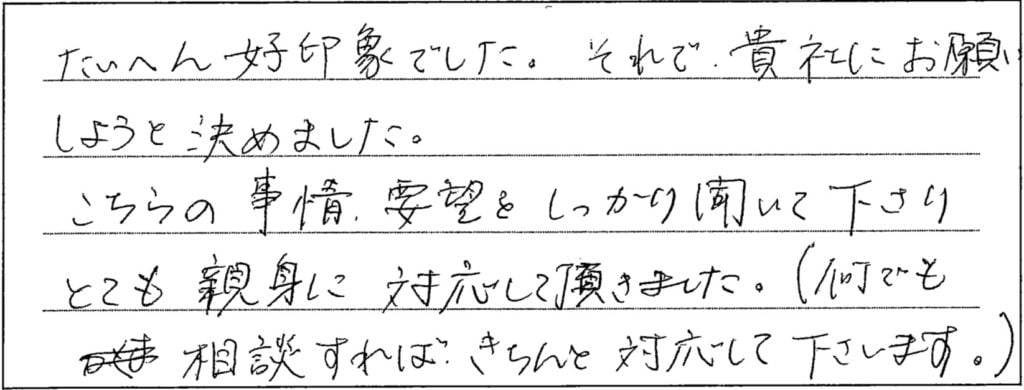 たいへん好印象でした。それで、貴社にお願い
しようと決めました。
こちらの事情、要望をしっかり聞いて下さり
とても親身に対応して頂きました。(何でも
相談すれば、きちんと対応して下さいます。)